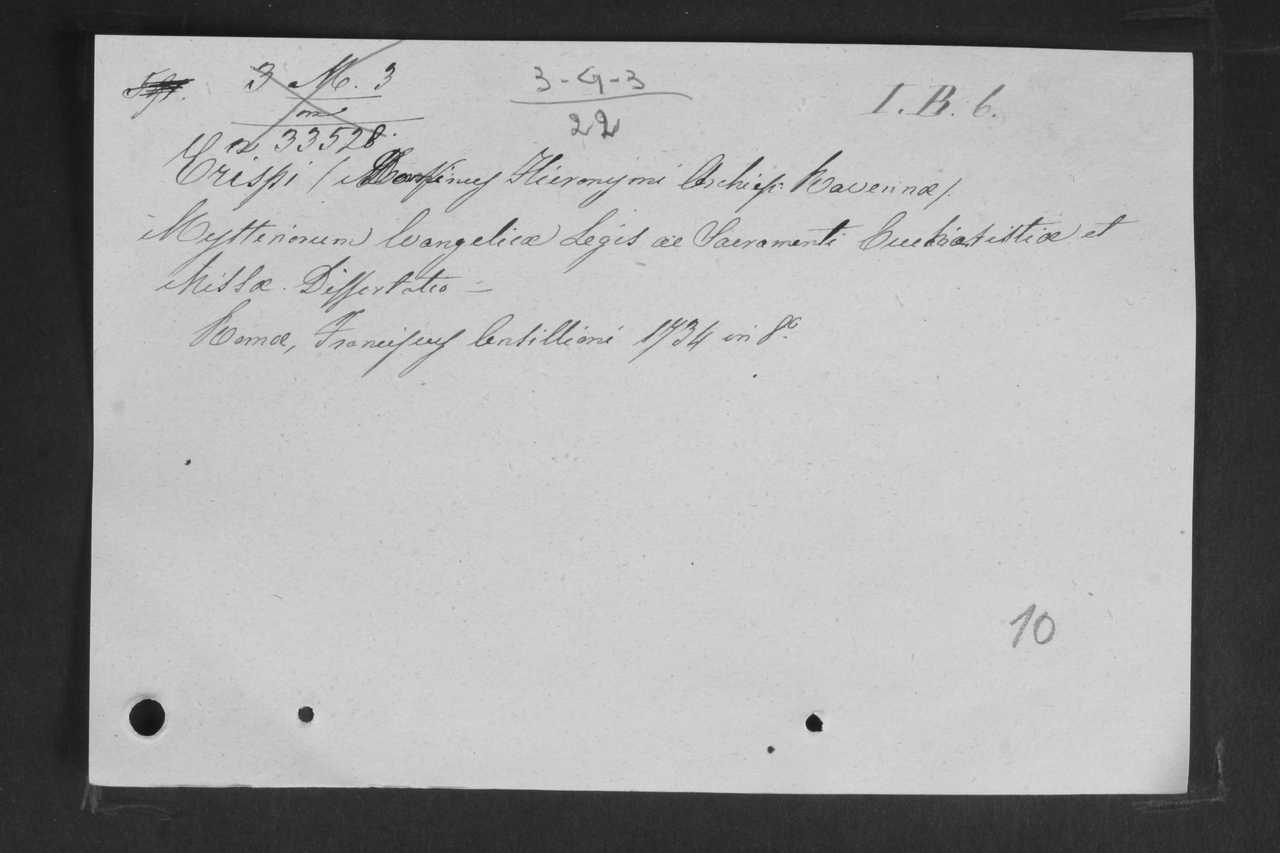 3 M. 3
3-G-3
22
I. B. 6.
n 33528.
Crispi / Hieronymi Archiep. Ravennæ/.
Mysteriorum Evangelicæ Legis ac Sacramenti Eucharistiæ et
Missæ. Dissertatio —
Romæ, 1734 in 8º.
10